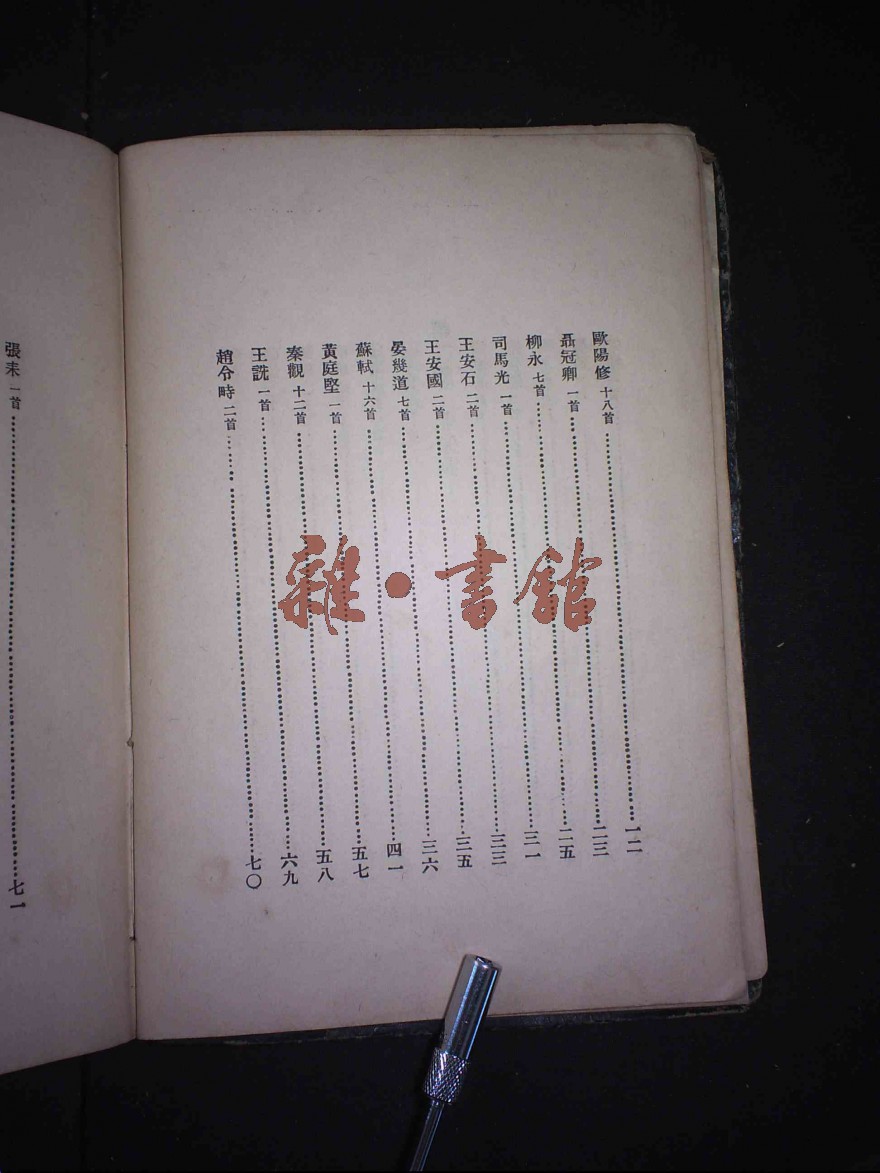 歐陽修 十八首……一二
聶冠卿 一首……二三
柳永 七首……二五
司馬光 一首……三一
王安石 二首……三三
王安國 二首……三五
晏幾道 七首……三六
蘇軾 十六首……四一
黃庭堅 一首……五七
秦觀 十二首……五八
王詵 一首……六九
趙令畤 二首……七〇
張耒 一首……七一
雜·書館